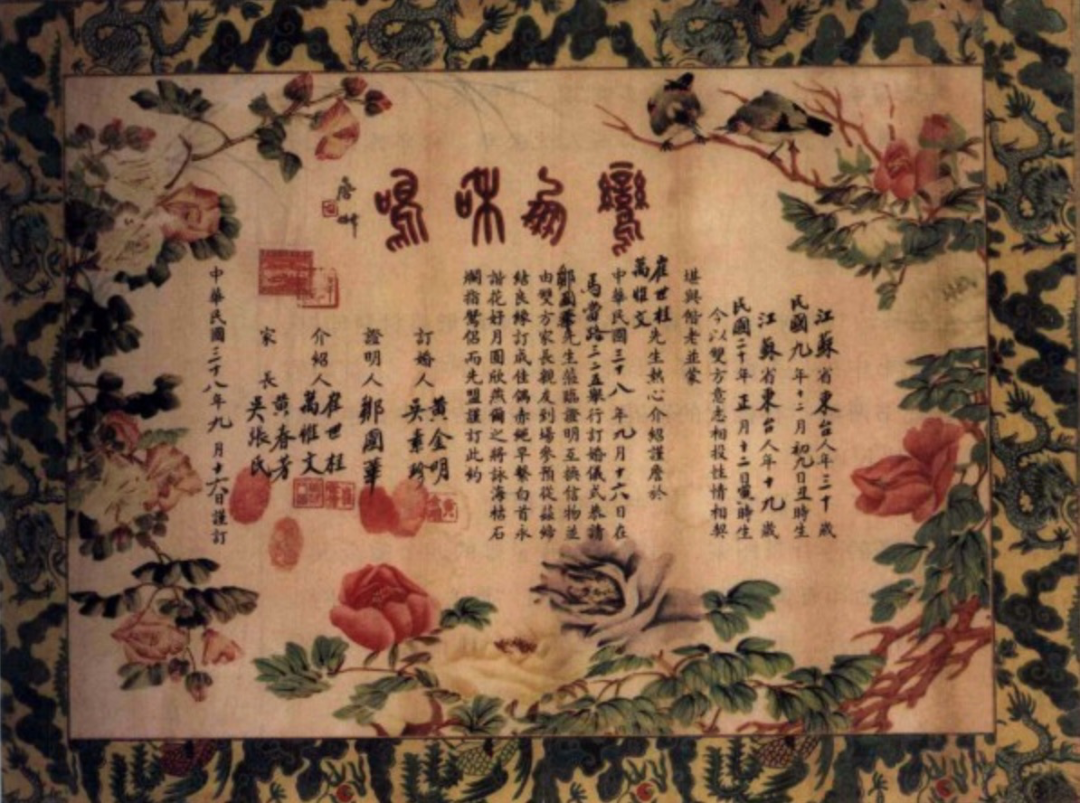 鸞鳳和鳴
江蘇省東台人年三十歲
民國九年十二月初九日丑時生
江蘇省東台人年十九歲
民國二十年正月十二日寅時生
今以雙方意志相投性情相契
堪與偕老並蒙
崔世桂
萬惟文先生熱心介紹謹詹於
中華民國三十八年九月十六日在
馬當路二二五舉行訂婚儀式恭請
鄭國華先生蒞臨證明互換信物並
由雙方家長親友到場參預從茲締
結良緣訂成佳偶赤繩早繫白首永
諧花好月圓欣燕爾之將詠海枯石
爛指鴛侶而先盟謹訂此約
訂婚人 黃金明
吳素珍
證明人 鄭國華
介紹人 崔世桂
萬惟文
家長 黃春芳
吳張氏
中華民國三十八年九月十六日謹訂